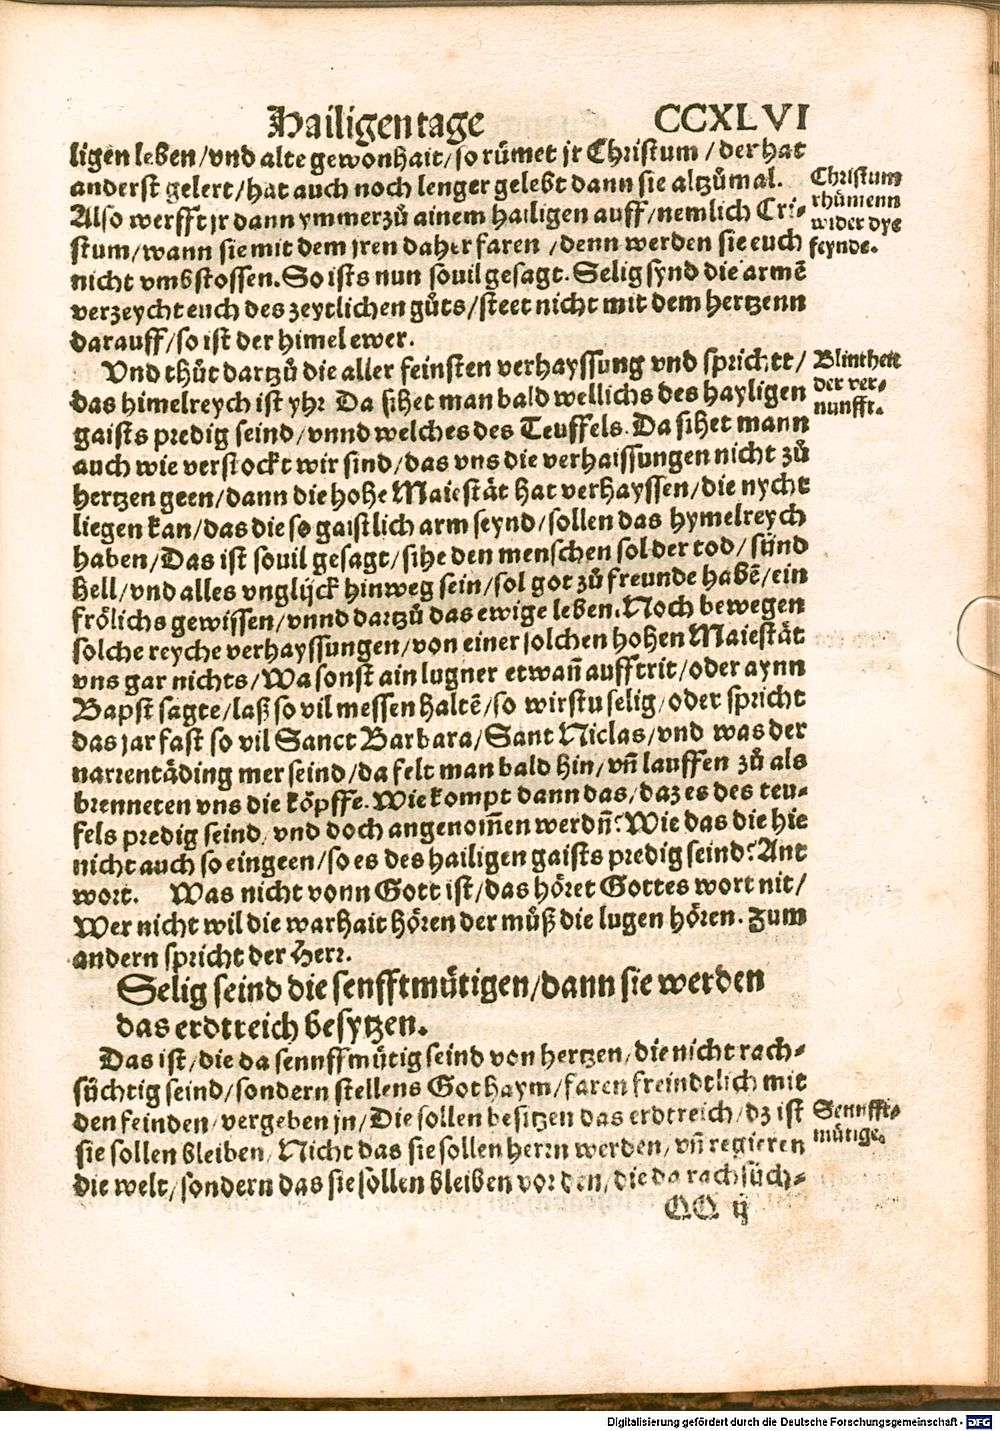 Hailigen tage CCXLVI
ligen leben/vnd alte gewonhait/so rümet jr Christum/der hat
anderst gelert/hat auch noch lenger gelebt dann sie altzůmal.
Also werfft jr dann ymmerzů ainem hailigen auff/nemlich Cri-
stum/wann sie mit dem jren daher faren/denn werden sie euch
nicht vmbstossen. So ists nun souil gesagt. Selig synd die armē
verzeycht euch des zeytlichen gůts/steet nicht mit dem hertzenn
darauff/so ist der himel ewer.
Christum
rhümenn
wider dye
feynde.
Vnd thůt dartzů die aller feinsten verhayssung vnd sprichtt/
das himelreych ist yhr Da sihet man bald wellichs des hayligen
gaists predig seind/vnnd welches des Teuffels. Da sihet mann
auch wie verstockt wir sind/das vns die verhaissungen nicht zů
hertzen geen/dann die hohe Maiestät hat verhayssen/die nycht
liegen kan/das die so gaistlich arm seynd/sollen das hymelreych
haben/Das ist souil gesagt/sihe den menschen sol der tod/sünd
hell/vnd alles vnglijck hinweg sein/sol got zů freunde habē/ein
frölichs gewissen/vnnd dartzů das ewige leben. Noch bewegen
solche reyche verhayssungen/von einer solchen hohen Maiestät
vns gar nichts/Wa sonst ain lugner etwañ aufftrit/oder aynn
Bapst sagte/laß so vil messen haltē/so wirstu selig/oder spricht
das jar fast so vil Sanct Barbara/Sant Niclas/vnd was der
narrentäding mer seind/da felt man bald hin/vñ lauffen zů als
brenneten vns die köpffe. Wie kompt dann das/daz es des teu-
fels predig seind/vnd doch angenom̄en werdñ? Wie das die hie
nicht auch so eingeen/so es des hailigen gaists predig seind? Ant
wort. Was nicht vonn Gott ist/das höret Gottes wort nit/
Wer nicht wil die warhait hören der můß die lugen hören. Zum
andern spricht der Herr.
Blintheit
der ver-
nunfft.
Selig seind die senfftmütigen/dann sie werden
das erdtreich besytzen.
Das ist/die da sennffmütig seind von hertzen/die nicht rach-
süchtig seind/sondern stellens Got haym/faren freindtlich mit
den feinden/vergeben jn/Die sollen besitzen das erdtreich/dz ist
sie sollen bleiben/Nicht das sie sollen herrn werden/vñ regieren
die welt/sondern das sie sollen bleiben vor den/die da rachsüch-
Sennfft-
mütige.
QQ ij
Digitalisierung gefördert durch die Deutsche Forschungsgemeinschaft - DFG